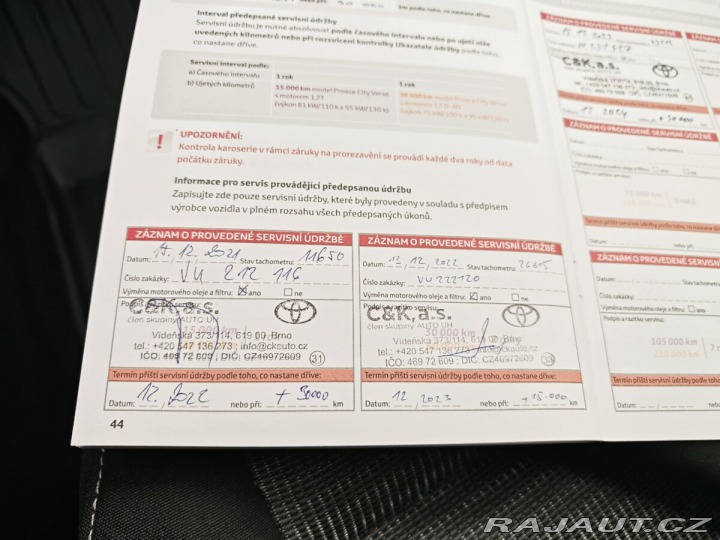 km podle toho, co nastane dříve.
Interval předepsané servisní údržby
Servisní údržbu je nutné absolvovat podle časového intervalu nebo po ujetí níže
uvedených kilometrů nebo při rozsvícení kontrolky Ukazatele údržby podle toho,
co nastane dříve.
Servisní interval podle:
a) Časového intervalu 1 rok 1 rok
b) Ujetých kilometrů 15 000 km model Proace City Verso
s motorem 1,2T
(výkon 81 kW/110 k a 95 kW/130 k)
UPOZORNĚNÍ:
Kontrola karoserie v rámci záruky na prorezavění se provádí každé dva roky od data
počátku záruky.
Informace pro servis provádějící předepsanou údržbu
Zapisujte zde pouze servisní údržby, které byly provedeny v souladu s předpisem
výrobce vozidla v plném rozsahu všech předepsaných úkonů.
ZÁZNAM O PROVEDENÉ SERVISNÍ ÚDRŽBĚ
Datum: 12. 2021 Stav tachometru: 11650
Číslo zakázky: VU 212 116
Výměna motorového oleje a filtru: ano ne
Podpis a razítko servisu:
C&K, a.s.
člen skupiny AUTO UH
15 000 km
Vídeňská 373/114, 619 00 Brno
tel.: +420 547 136 273 ; info@ckauto.cz
IČO: 469 72 609 ; DIČ: CZ46972609 31
Termín příští servisní údržby podle toho, co nastane dříve:
Datum: 12. 2022 nebo při: + 30000 km
44
ZÁZNAM O PROVEDENÉ SERVISNÍ ÚDRŽBĚ
Datum: 12 2022 Stav tachometru: 26615
Číslo zakázky: VU222120
Výměna motorového oleje a filtru: ano ne
Podpis a razítko servisu:
C&K, a.s.
člen skupiny AUTO UH
30 000 km
Vídeňská 373/114, 619 00 Brno
tel.: +420 547 136 273 ; info@ckauto.cz
IČO: 469 72 609 ; DIČ: CZ46972609 33
Termín příští servisní údržby podle toho, co nastane dříve:
Datum: 12 2023 nebo při: +15.000 km
ZÁZNAM O PROVEDENÉ SERVISNÍ
C&K, a.s.
12 2024 + 30000
ZÁZNAM O PROVEDENÉ SERVISNÍ
Datum: Stav tachometru:
Číslo zakázky:
Výměna motorového oleje a filtru: ano
Podpis a razítko servisu:
75 000 km
Termín příští servisní údržby podle toho, co nastane
Datum: nebo při:
ZÁZNAM O PROVEDENÉ SERVISNÍ
Datum: Stav tachometru:
Číslo zakázky:
Výměna motorového oleje a filtru: ano
Podpis a razítko servisu:
105 000 km
210 000 km
Termín příští servisní údržby podle toho, co nastane
Datum: nebo při:
RAJAUT.CZ